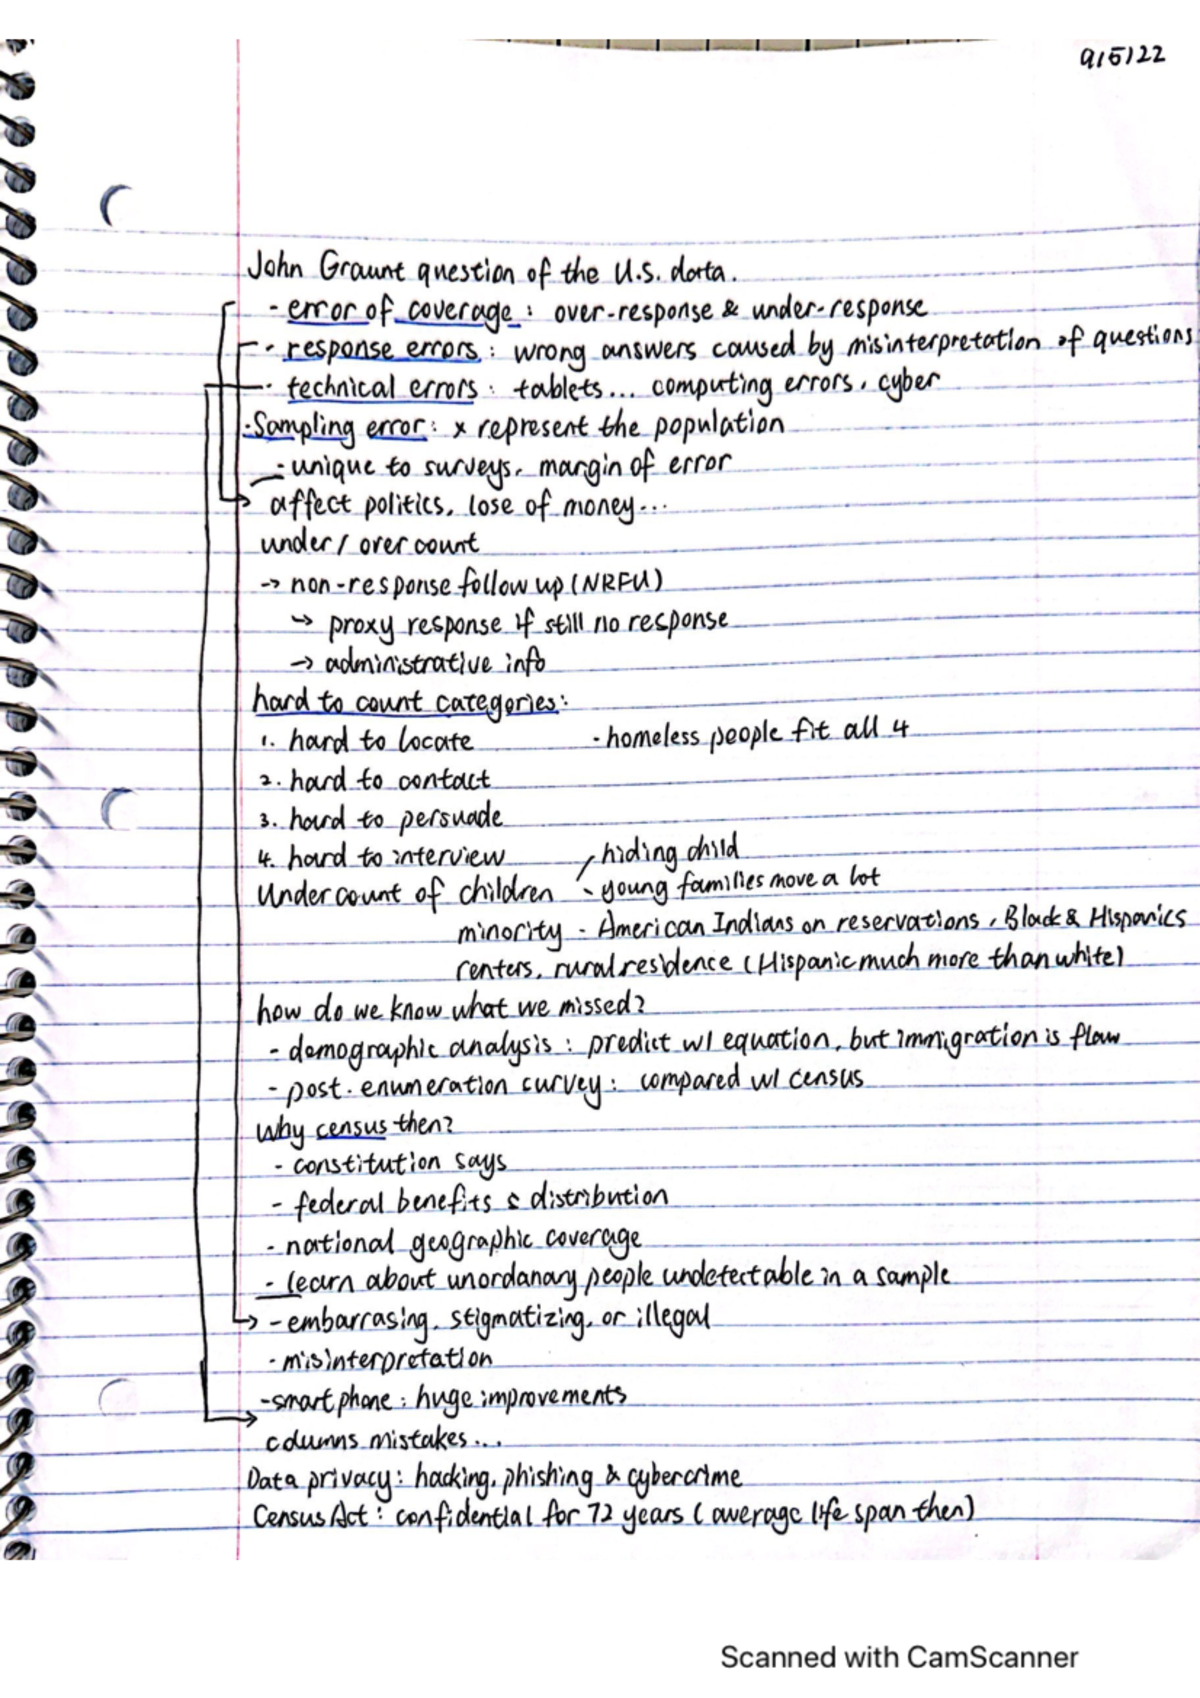 9/5/22
John Graunt question of the U.S. data.
- error of coverage : over-response & under-response
- response errors : wrong answers caused by misinterpretation of questions
- technical errors : tablets... computing errors, cyber
- Sampling error : x represent the population
- unique to surveys, margin of error
affect politics, lose of money...
under / over count
-> non-response follow up (NRFU)
↳ proxy response if still no response
-> administrative info
hard to count categories:
1. hard to locate - homeless people fit all 4
2. hard to contact
3. hard to persuade
4. hard to interview
hiding child
Undercount of children - young families move a lot
minority - American Indians on reservations, Black & Hispanics
renters, rural residence (Hispanic much more than white)
how do we know what we missed?
- demographic analysis : predict w/ equation, but immigration is flaw
- post-enumeration curvey : compared w/ census
Why census then?
- constitution says
- federal benefits & distribution
- national geographic coverage
- learn about unordanary people undetectable in a sample
-> - embarrasing, stigmatizing, or illegal
- misinterpretation
- smartphone : huge improvements
columns mistakes...
Data privacy : hacking, phishing & cybercrime
Census Act : confidential for 72 years (average life span then)
Scanned with CamScanner